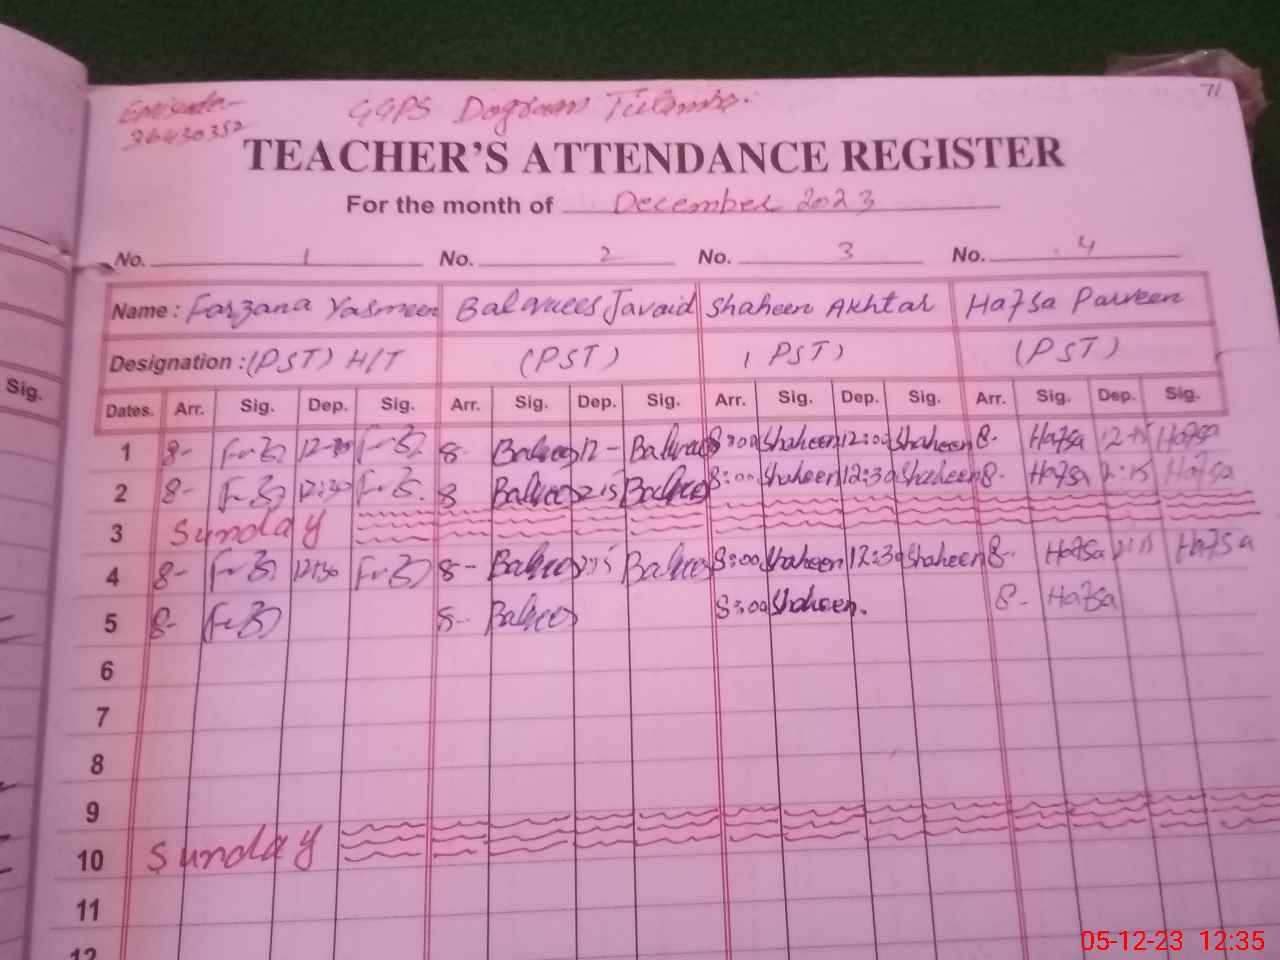 71
GGPS
36430352
TEACHER'S ATTENDANCE REGISTER
For the month of December 2023
No. 1 No. 2 No. 3 No. 4
Name : Farzana Yasmeen Javaid Shaheen Akhtar Hafsa Parveen
Designation : (PST) H/T (PST) (PST) (PST)
Sig.
Dates. Arr. Sig. Dep. Sig. Arr. Sig. Dep. Sig. Arr. Sig. Dep. Sig. Arr. Sig. Dep. Sig.
1 8- 8- 12- 8:00 Shaheen 12:00 Shaheen 8- Hafsa 12-15 Hafsa
2 8- 12:30 8 8:00 Shaheen 12:30 Shaheen 8- Hafsa Hafsa
3 Sunday
4 8- 12:30 8- 8:00 Shaheen 12:30 Shaheen 8- Hafsa Hafsa
5 8- 8- 8:00 Shaheen. 8- Hafsa
6
7
8
9
10 Sunday
11
12
05-12-23 12:35